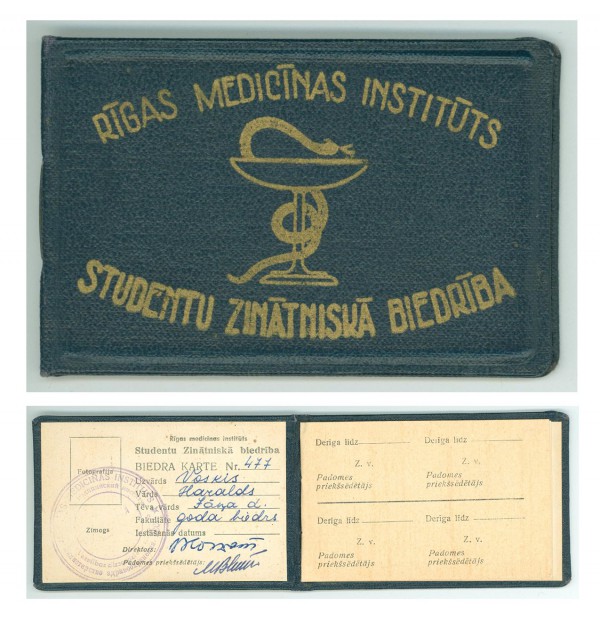 RĪGAS MEDICĪNAS INSTITŪTS
STUDENTU ZINĀTNISKĀ BIEDRĪBA
Rīgas medicīnas institūts
Studentu Zinātniskā biedrība
BIEDRA KARTE Nr. 477
Fotografija
Uzvārds Vāskis
Vārds Haralds
Tēva vārds Jāņa d.
Fakultāte goda biedrs
Iestāšanās datums
Zīmogs
Direktors:
Padomes priekšsēdētājs:
MEDICĪNAS INSTITŪTS
Derīga līdz Derīga līdz
Z. v. Z. v.
Padomes priekšsēdētājs Padomes priekšsēdētājs
Derīga līdz Derīga līdz
Z. v. Z. v.
Padomes priekšsēdētājs Padomes priekšsēdētājs